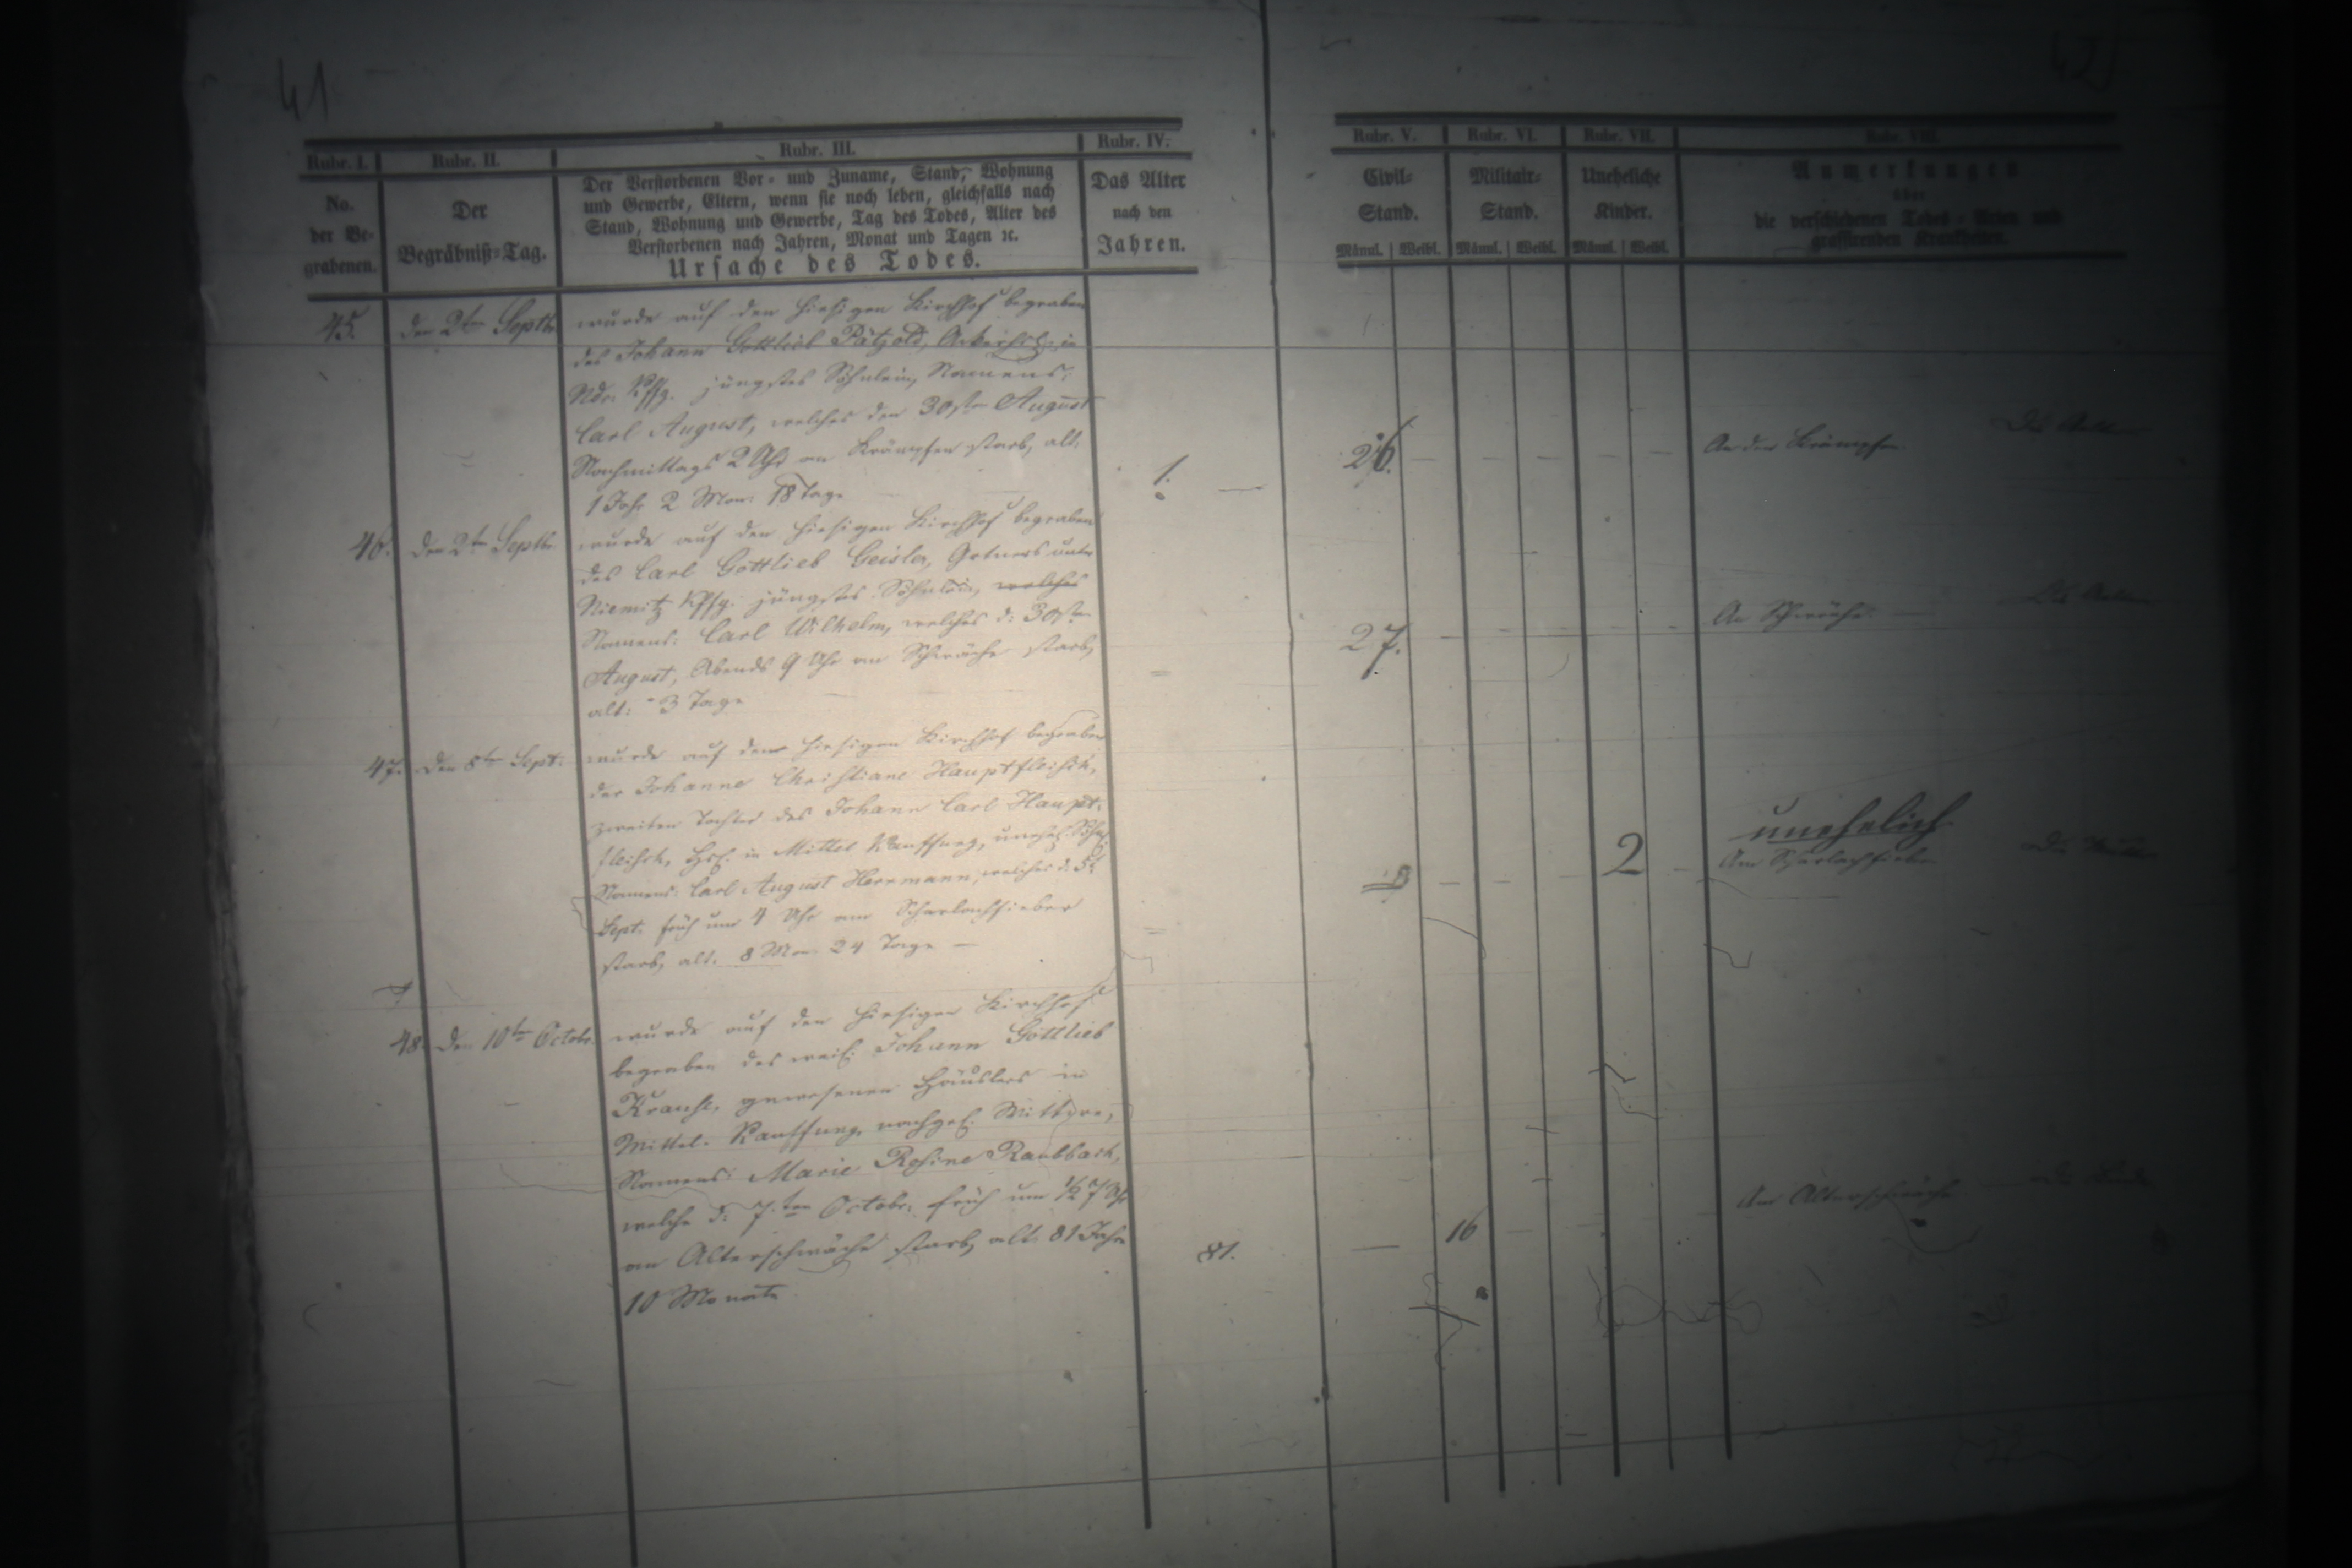 41
42
Rubr. I.
Rubr. II.
Rubr. III.
Rubr. IV.
Rubr. V.
Rubr. VI.
Rubr. VII.
Rubr. VIII.
No.
der Be-
grabenen.
Der
Begräbniß-Tag.
Der Verstorbenen Vor- und Zuname, Stand, Wohnung
und Gewerbe, Eltern, wenn sie noch leben, gleichfalls nach
Stand, Wohnung und Gewerbe, Tag des Todes, Alter des
Verstorbenen nach Jahren, Monat und Tagen ꝛc.
Ursache des Todes.
Das Alter
nach den
Jahren.
Civil-
Stand.
Männl. Weibl.
Militair-
Stand.
Männl. Weibl.
Uneheliche
Kinder.
Männl. Weibl.
Anmerkungen
über
die verschiedenen Todes-Arten und
grassirenden Krankheiten.
45. den 2ten Septbr. wurde auf den hiesigen Kirchhof begraben
des Johann Gottlieb Pätzold, in
Ndr. Kffg. jüngstes Söhnlein, Namens:
Carl August, welches den 30sten August
Nachmittags 2 Uhr an Krämpfen starb, alt:
1 Jahr 2 Mon: 18 Tage
1.
26.
An den Krämpfen.
46. den 2ten Septbr. wurde auf den hiesigen Kirchhof begraben
des Carl Gottlieb Geisler, unter
Niemitz Kffg. jüngstes Söhnlein, welches
Namens: Carl Wilhelm, welches d: 30sten
August, Abends 9 Uhr an Schwäche starb,
alt: 3 Tage
27.
An Schwäche.
47. den 8ten Sept: wurde auf dem hiesigen Kirchhof begraben
der Johanne Christiane Hauptfleisch,
zweiten Tochter des Johann Carl Haupt-
fleisch, in Mittel Kauffung, unehel. Söhnl.
Namens: Carl August Herrmann, welches d: 5t
Sept. früh um 4 Uhr am Scharlachfieber
starb, alt. 8 Mon. 24 Tage
2
unehelich
Am Scharlachfieber
48. den 10ten Octobr. wurde auf den hiesigen Kirchhof
begraben des weil. Johann Gottlieb
Krause, gewesenen Häuslers in
Mittel-Kauffung, nachgel. Wittwe,
Namens: Marie Rosine Raubbach,
welche d: 7ten Octobr: früh um 1/2 7 Uhr
an Altersschwäche starb, alt 81 Jahr
10 Monate
81.
16
An Altersschwäche